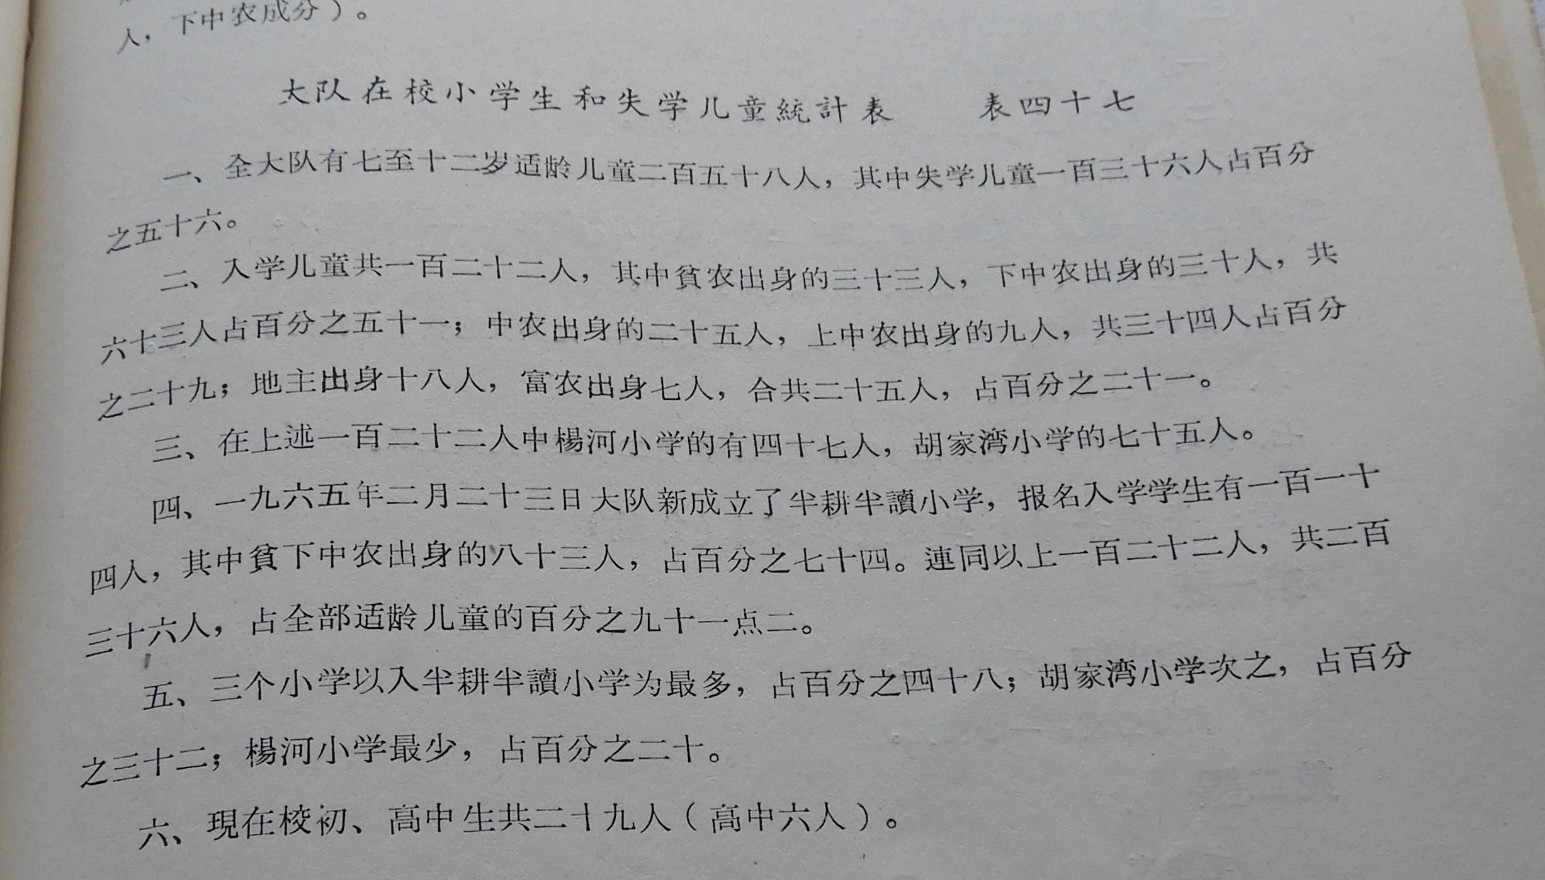 人，下中农成分）。
大队在校小学生和失学儿童統計表 表四十七
一、全大队有七至十二岁适龄儿童二百五十八人，其中失学儿童一百三十六人占百分
之五十六。
二、入学儿童共一百二十二人，其中貧农出身的三十三人，下中农出身的三十人，共
六十三人占百分之五十一；中农出身的二十五人，上中农出身的九人，共三十四人占百分
之二十九；地主出身十八人，富农出身七人，合共二十五人，占百分之二十一。
三、在上述一百二十二人中楊河小学的有四十七人，胡家湾小学的七十五人。
四、一九六五年二月二十三日大队新成立了半耕半讀小学，报名入学学生有一百一十
四人，其中貧下中农出身的八十三人，占百分之七十四。連同以上一百二十二人，共二百
三十六人，占全部适龄儿童的百分之九十一点二。
五、三个小学以入半耕半讀小学为最多，占百分之四十八；胡家湾小学次之，占百分
之三十二；楊河小学最少，占百分之二十。
六、現在校初、高中生共二十九人（高中六人）。